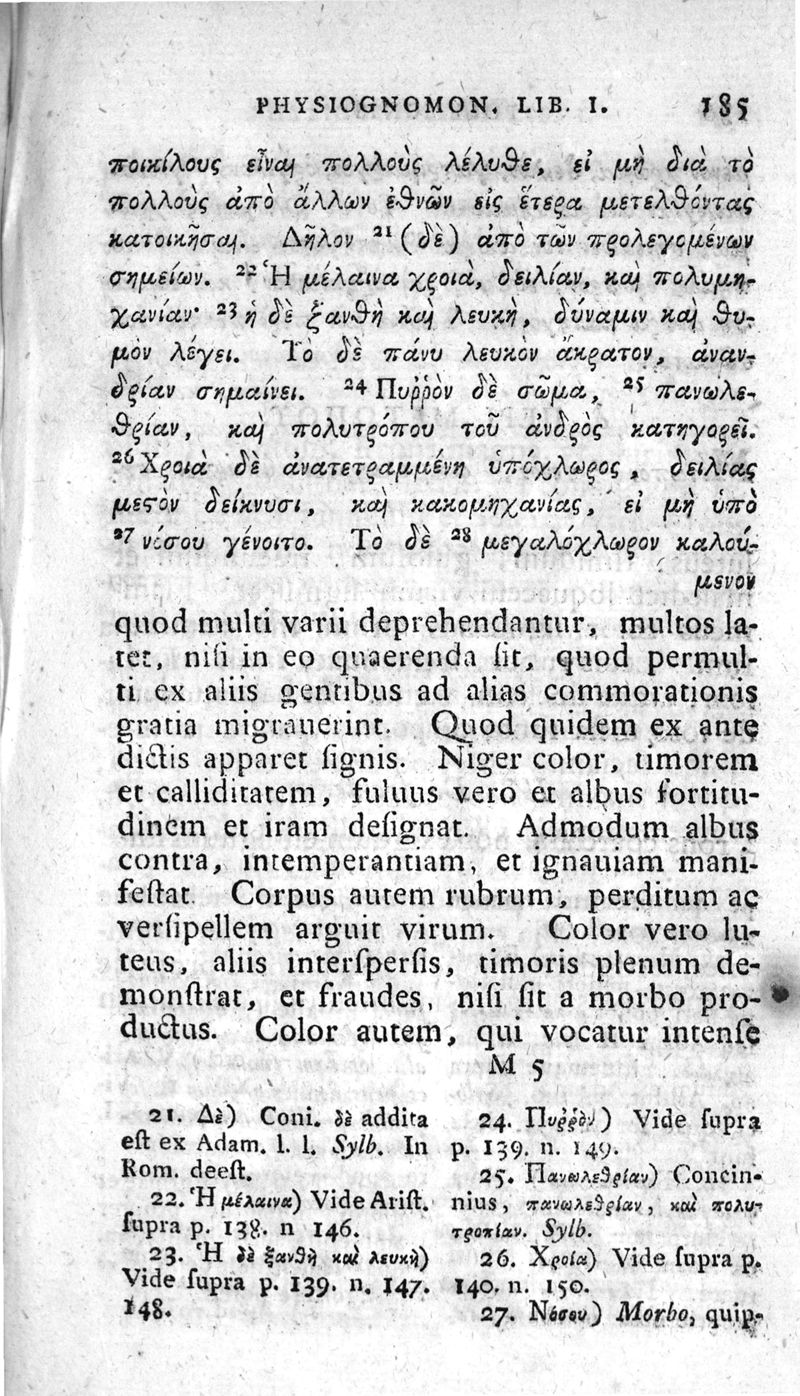 PHYSIOGNOMON. LIB. I. 185
ποικίλους εἶναι πολλοὺς λέλυθε, εἰ μὴ διὰ τὸ
πολλοὺς ἀπὸ ἄλλων ἐθνῶν εἰς ἕτερα μετελθόντας
κατοικῆσαι. Δῆλον ²¹ (δὲ) ἀπὸ τῶν προλεγομένων
σημείων. ²² Ἡ μέλαινα χροιὰ, δειλίαν, καὶ πολυμη-
χανίαν· ²³ ἡ δὲ ξανθὴ καὶ λευκὴ, δύναμιν καὶ θυ-
μὸν λέγει. Τὸ δὲ πάνυ λευκὸν ἄκρατον, ἀναν-
δρίαν σημαίνει. ²⁴ Πυῤῥὸν δὲ σῶμα, ²⁵ πανωλε-
θρίαν, καὶ πολυτρόπου τοῦ ἀνδρὸς κατηγορεῖ.
²⁶ Χροιὰ δὲ ἀνατετραμμένη ὑπόχλωρος, δειλίας
μεϛὸν δείκνυσι, καὶ κακομηχανίας, εἰ μὴ ὑπὸ
²⁷ νόσου γένοιτο. Τὸ δὲ ²⁸ μεγαλόχλωρον καλού-
μενον
quod multi varii deprehendantur, multos la-
tet, niſi in eo quaerenda ſit, quod permul-
ti ex aliis gentibus ad alias commorationis
gratia migrauerint. Quod quidem ex ante
dictis apparet ſignis. Niger color, timorem
et calliditatem, fuluus vero et albus fortitu-
dinem et iram deſignat. Admodum albus
contra, intemperantiam, et ignauiam mani-
feſtat. Corpus autem rubrum, perditum ac
verſipellem arguit virum. Color vero lu-
teus, aliis interſperſis, timoris plenum de-
monſtrat, et fraudes, niſi ſit a morbo pro-
ductus. Color autem, qui vocatur intenſe
M 5
21. Δὲ) Coni. δὲ addita
eſt ex Adam. l. l. Sylb. In
Rom. deeſt.
22. Ἡ μέλαινα) Vide Ariſt.
ſupra p. 138. n 146.
23. Ἡ δὲ ξανθὴ καὶ λευκὴ)
Vide ſupra p. 139. n. 147.
148.
24. Πυῤῥὸν) Vide ſupra
p. 139. n. 149.
25. Πανωλεθρίαν) Concin-
nius, πανωλεθρίαν, καὶ πολυ-
τροπίαν. Sylb.
26. Χροία) Vide ſupra p.
140. n. 150.
27. Νόσου) Morbo, quip-